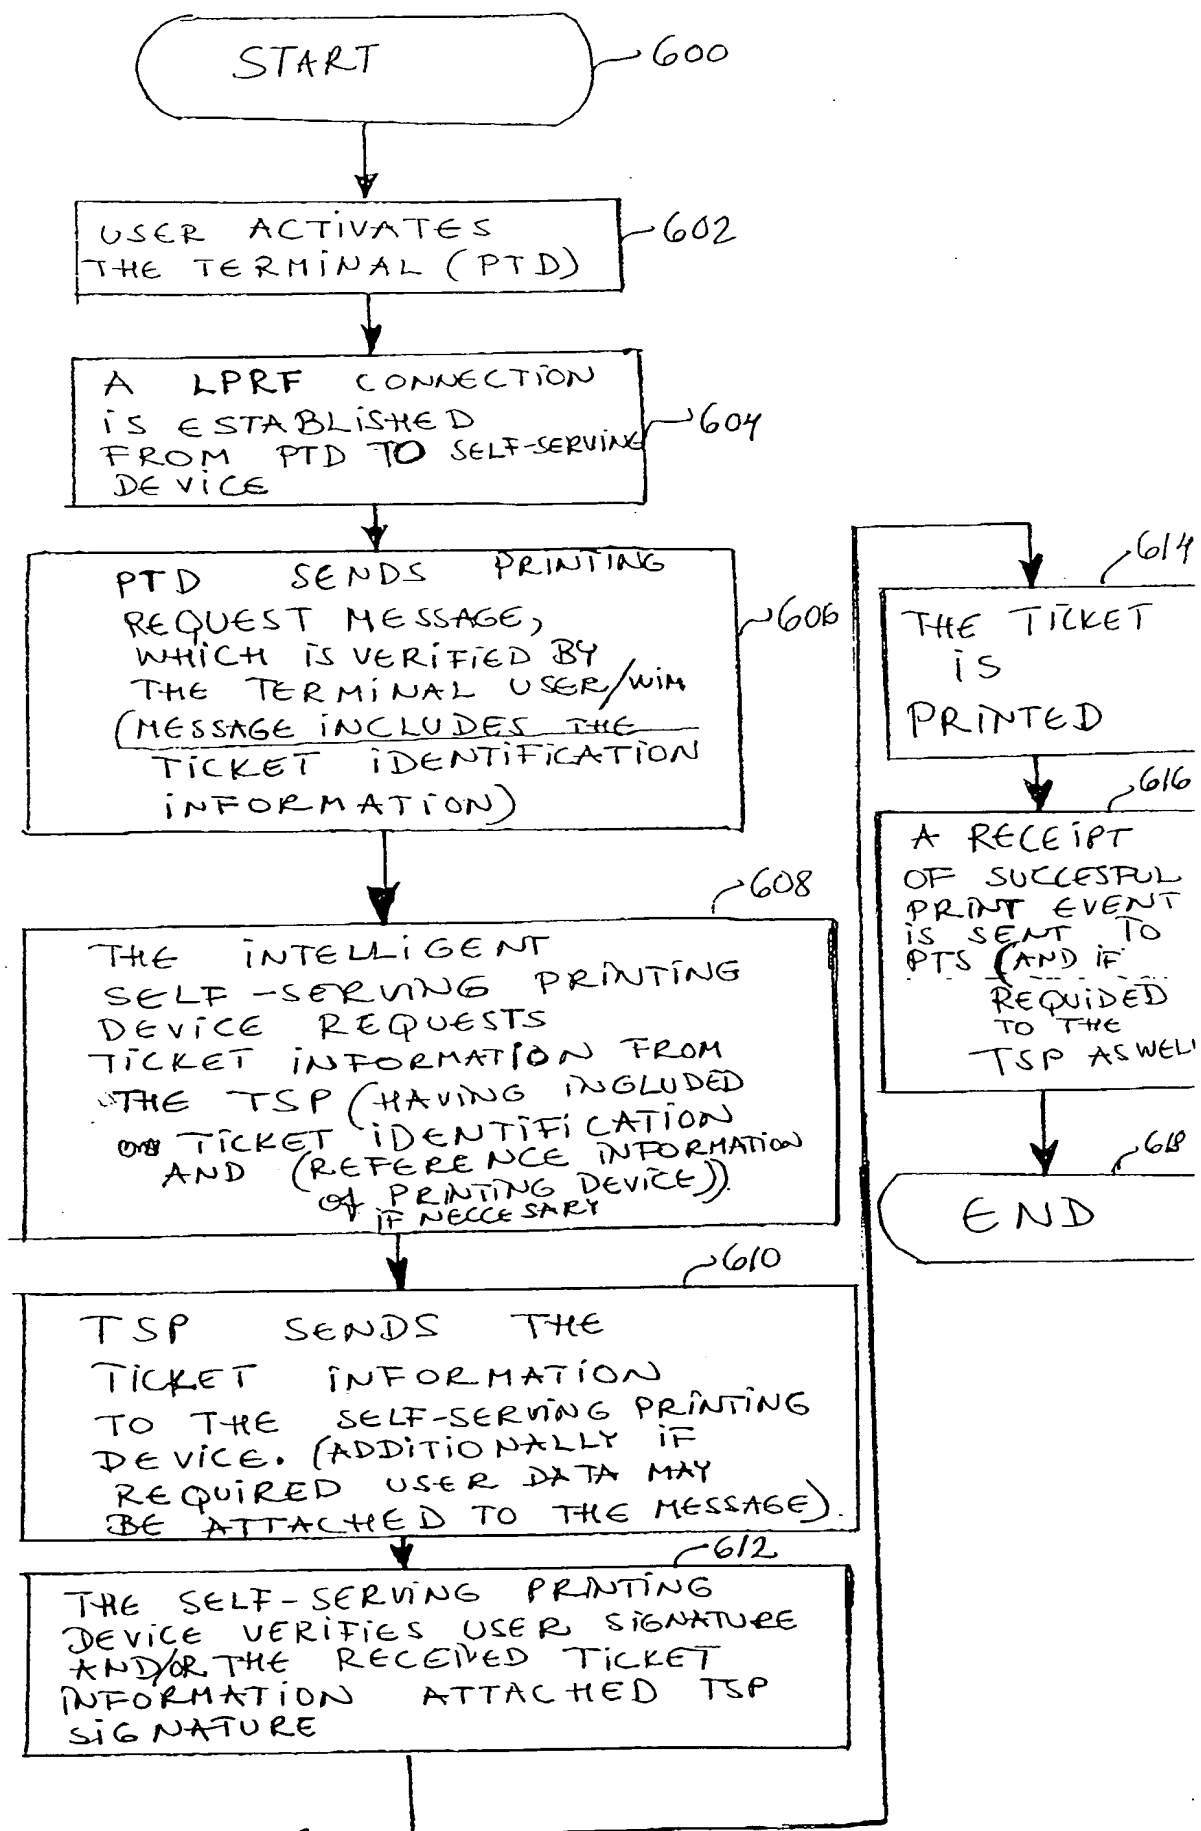 START
600
USER ACTIVATES
THE TERMINAL (PTD)
602
A LPRF CONNECTION
IS ESTABLISHED
FROM PTD TO SELF-SERVING
DEVICE
604
PTD SENDS PRINTING
REQUEST MESSAGE,
WHICH IS VERIFIED BY
THE TERMINAL USER/WIM
(MESSAGE INCLUDES THE
TICKET IDENTIFICATION
INFORMATION)
606
608
THE INTELLIGENT
SELF-SERVING PRINTING
DEVICE REQUESTS
TICKET INFORMATION FROM
THE TSP (HAVING INCLUDED
TICKET IDENTIFICATION
AND (REFERENCE INFORMATION
of PRINTING DEVICE))
IF NECCESARY
610
TSP SENDS THE
TICKET INFORMATION
TO THE SELF-SERVING PRINTING
DEVICE. (ADDITIONALLY IF
REQUIRED USER DATA MAY
BE ATTACHED TO THE MESSAGE).
612
THE SELF-SERVING PRINTING
DEVICE VERIFIES USER SIGNATURE
AND/OR THE RECEIVED TICKET
INFORMATION ATTACHED TSP
SIGNATURE
614
THE TICKET
IS
PRINTED
616
A RECEIPT
OF SUCCESFUL
PRINT EVENT
IS SENT TO
PTS (AND IF
REQUIDED
TO THE
TSP AS WELL
618
END